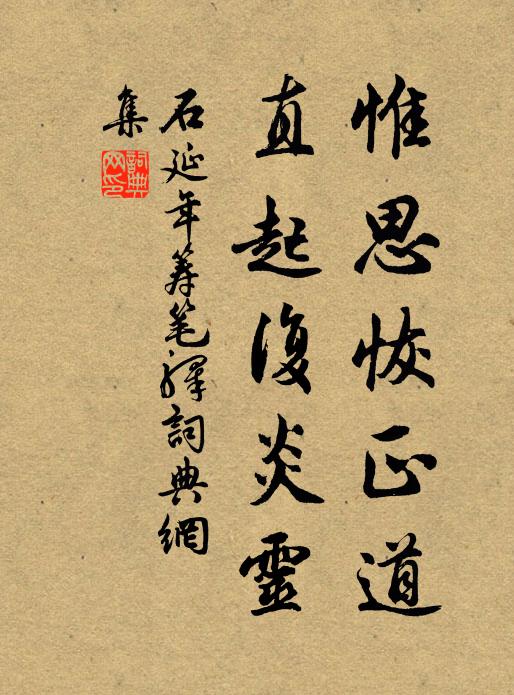 惟思恢正道
直起復炎靈
石延年籌笔驛詞典網
集
詞典
网印